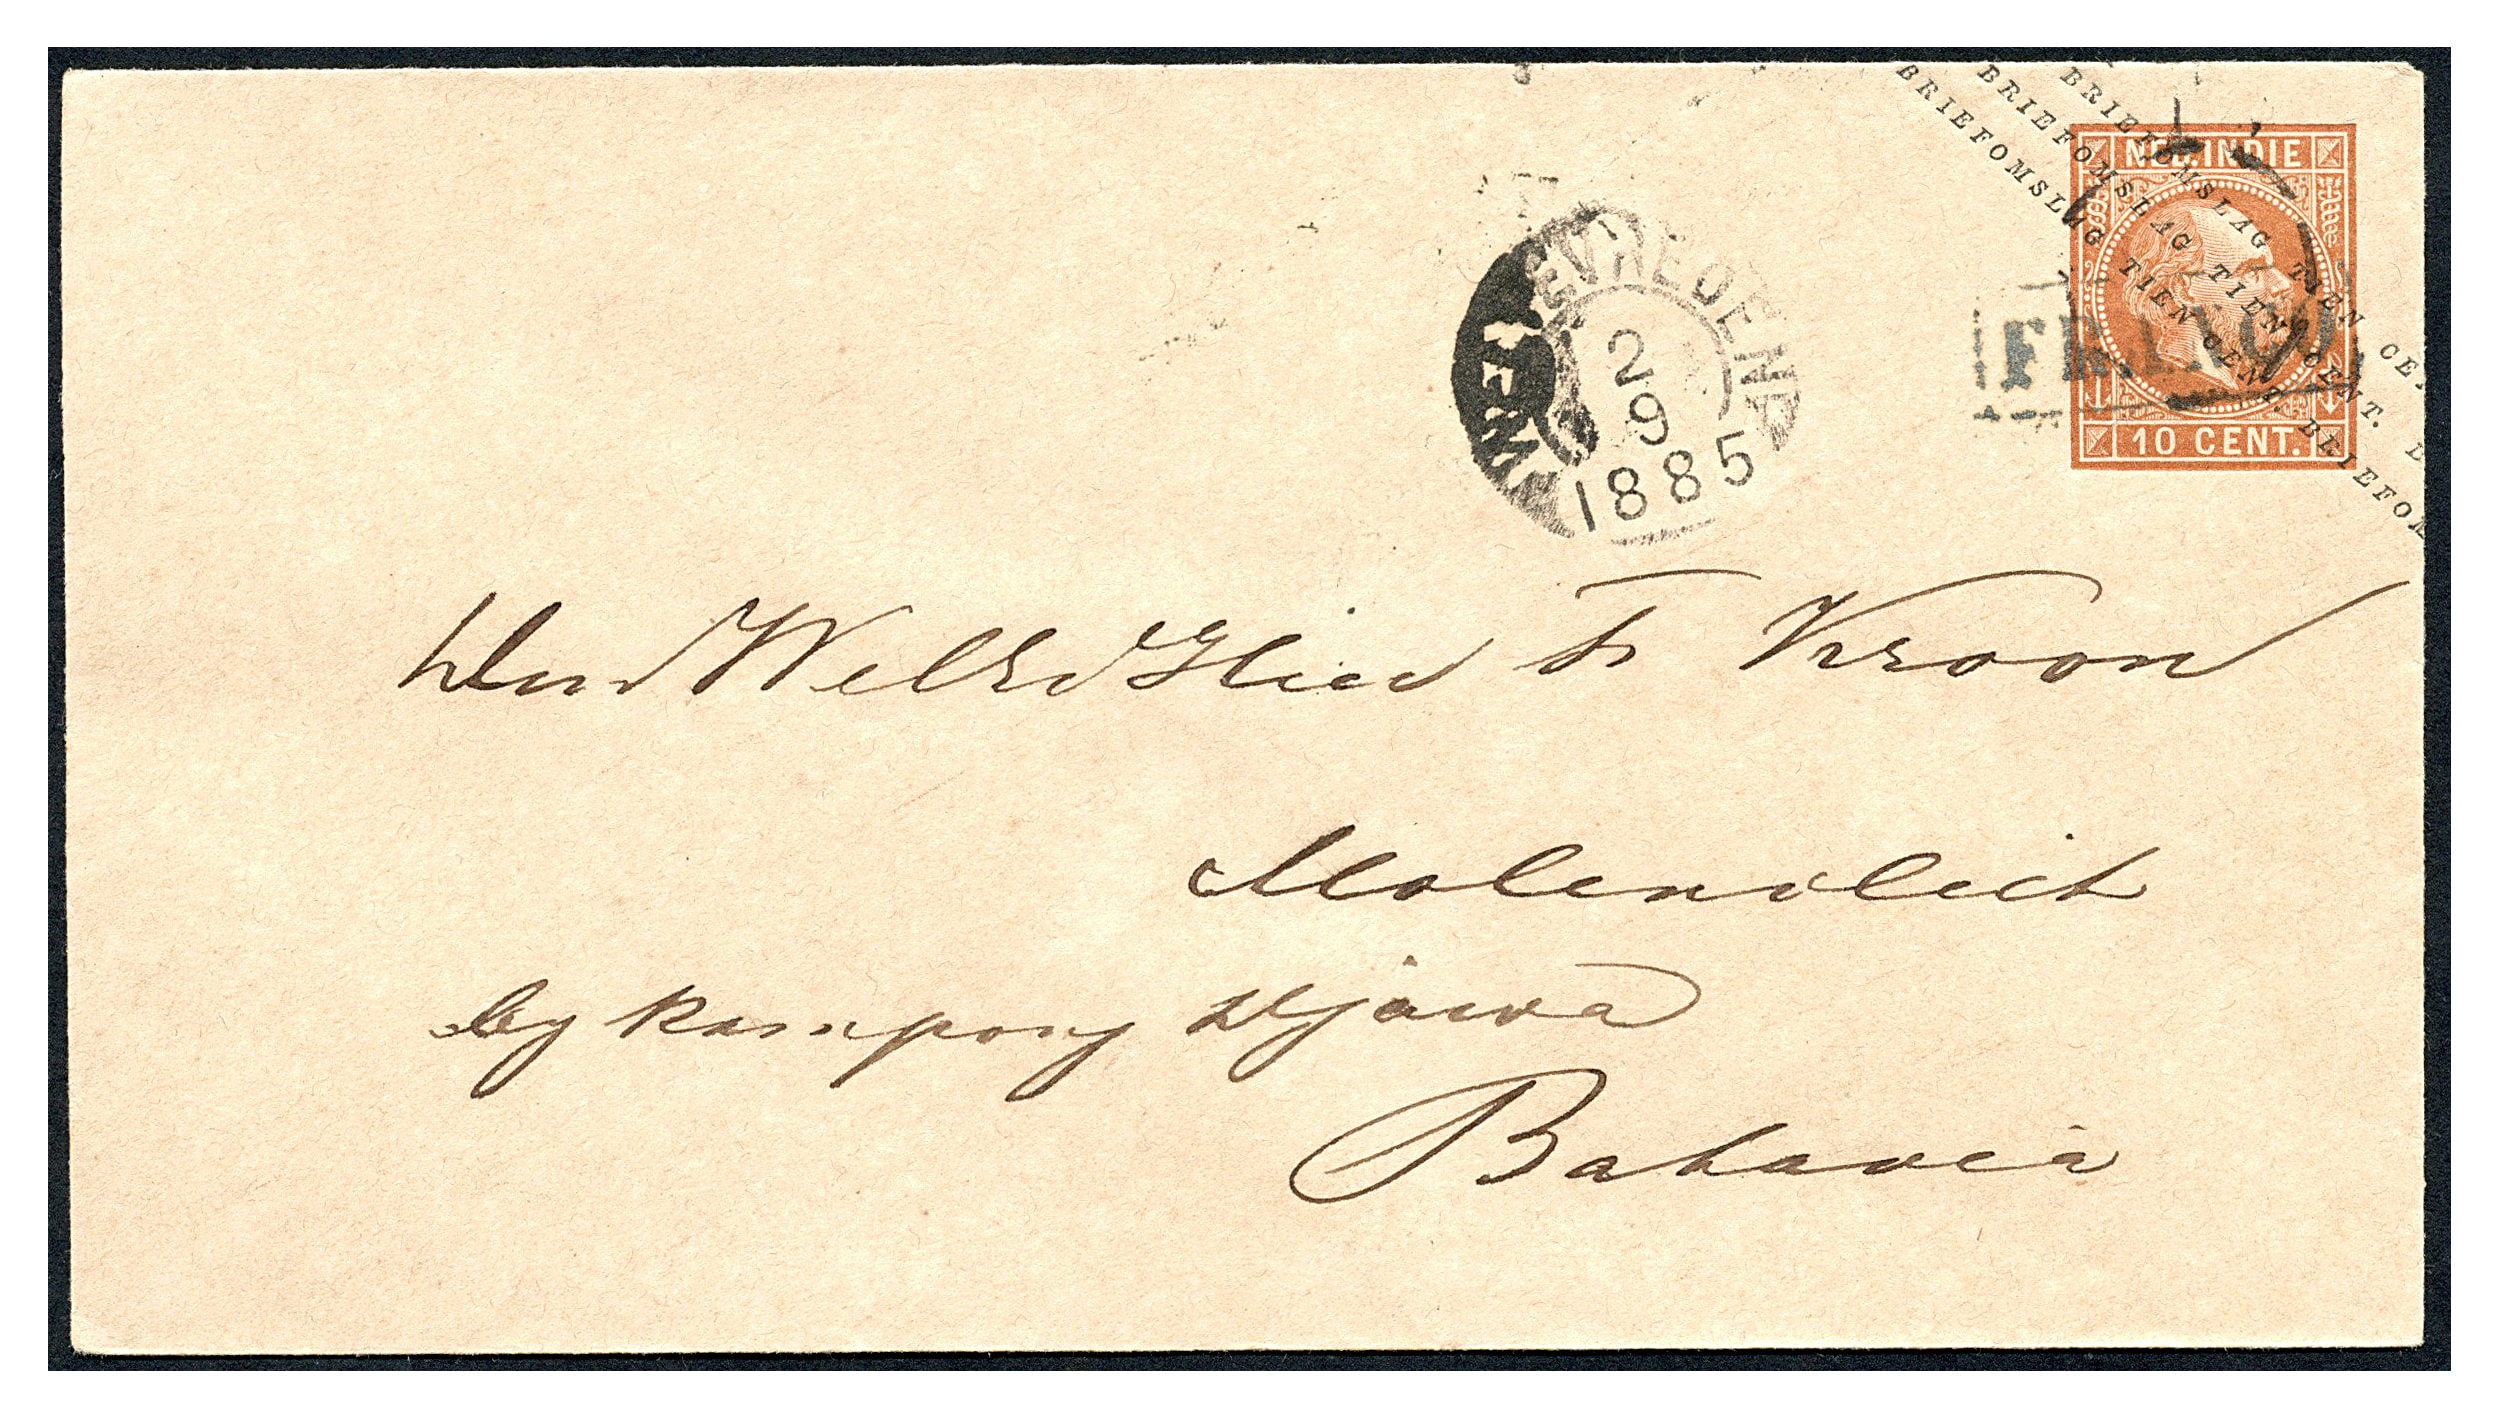 BRIEFOMSLAG TIEN CE
BRIEFOMSLAG TIEN CENT. B
BRIEFOMSLAG TIEN CENT. BRIEFOM
NED. INDIE
10 CENT.
FRANCO.
WELTEVREDEN
2
9
1885
Den WelEd Heer Fr Kroon
Molenvliet
by kampong Djawa
Batavia